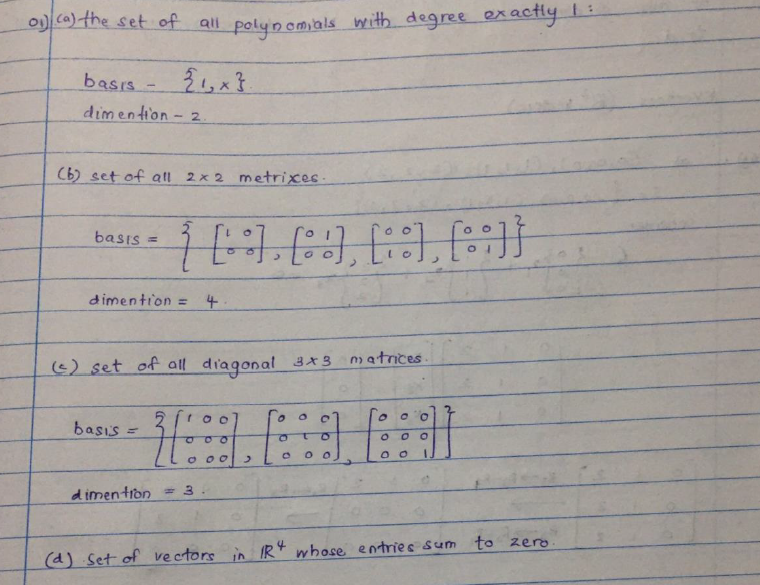 01) (a) the set of all polynomials with degree exactly 1 :
basis - {1, x}.
dimention - 2
(b) set of all 2×2 metrixes.
basis = { [1 0 0 0], [0 1 0 0], [0 0 1 0], [0 0 0 1] }
dimention = 4.
(c) set of all diagonal 3×3 matrices.
basis = { [1 0 0 0 0 0 0 0 0], [0 0 0 0 1 0 0 0 0], [0 0 0 0 0 0 0 0 1] }
dimention = 3.
(d) set of vectors in ℝ⁴ whose entries sum to zero.